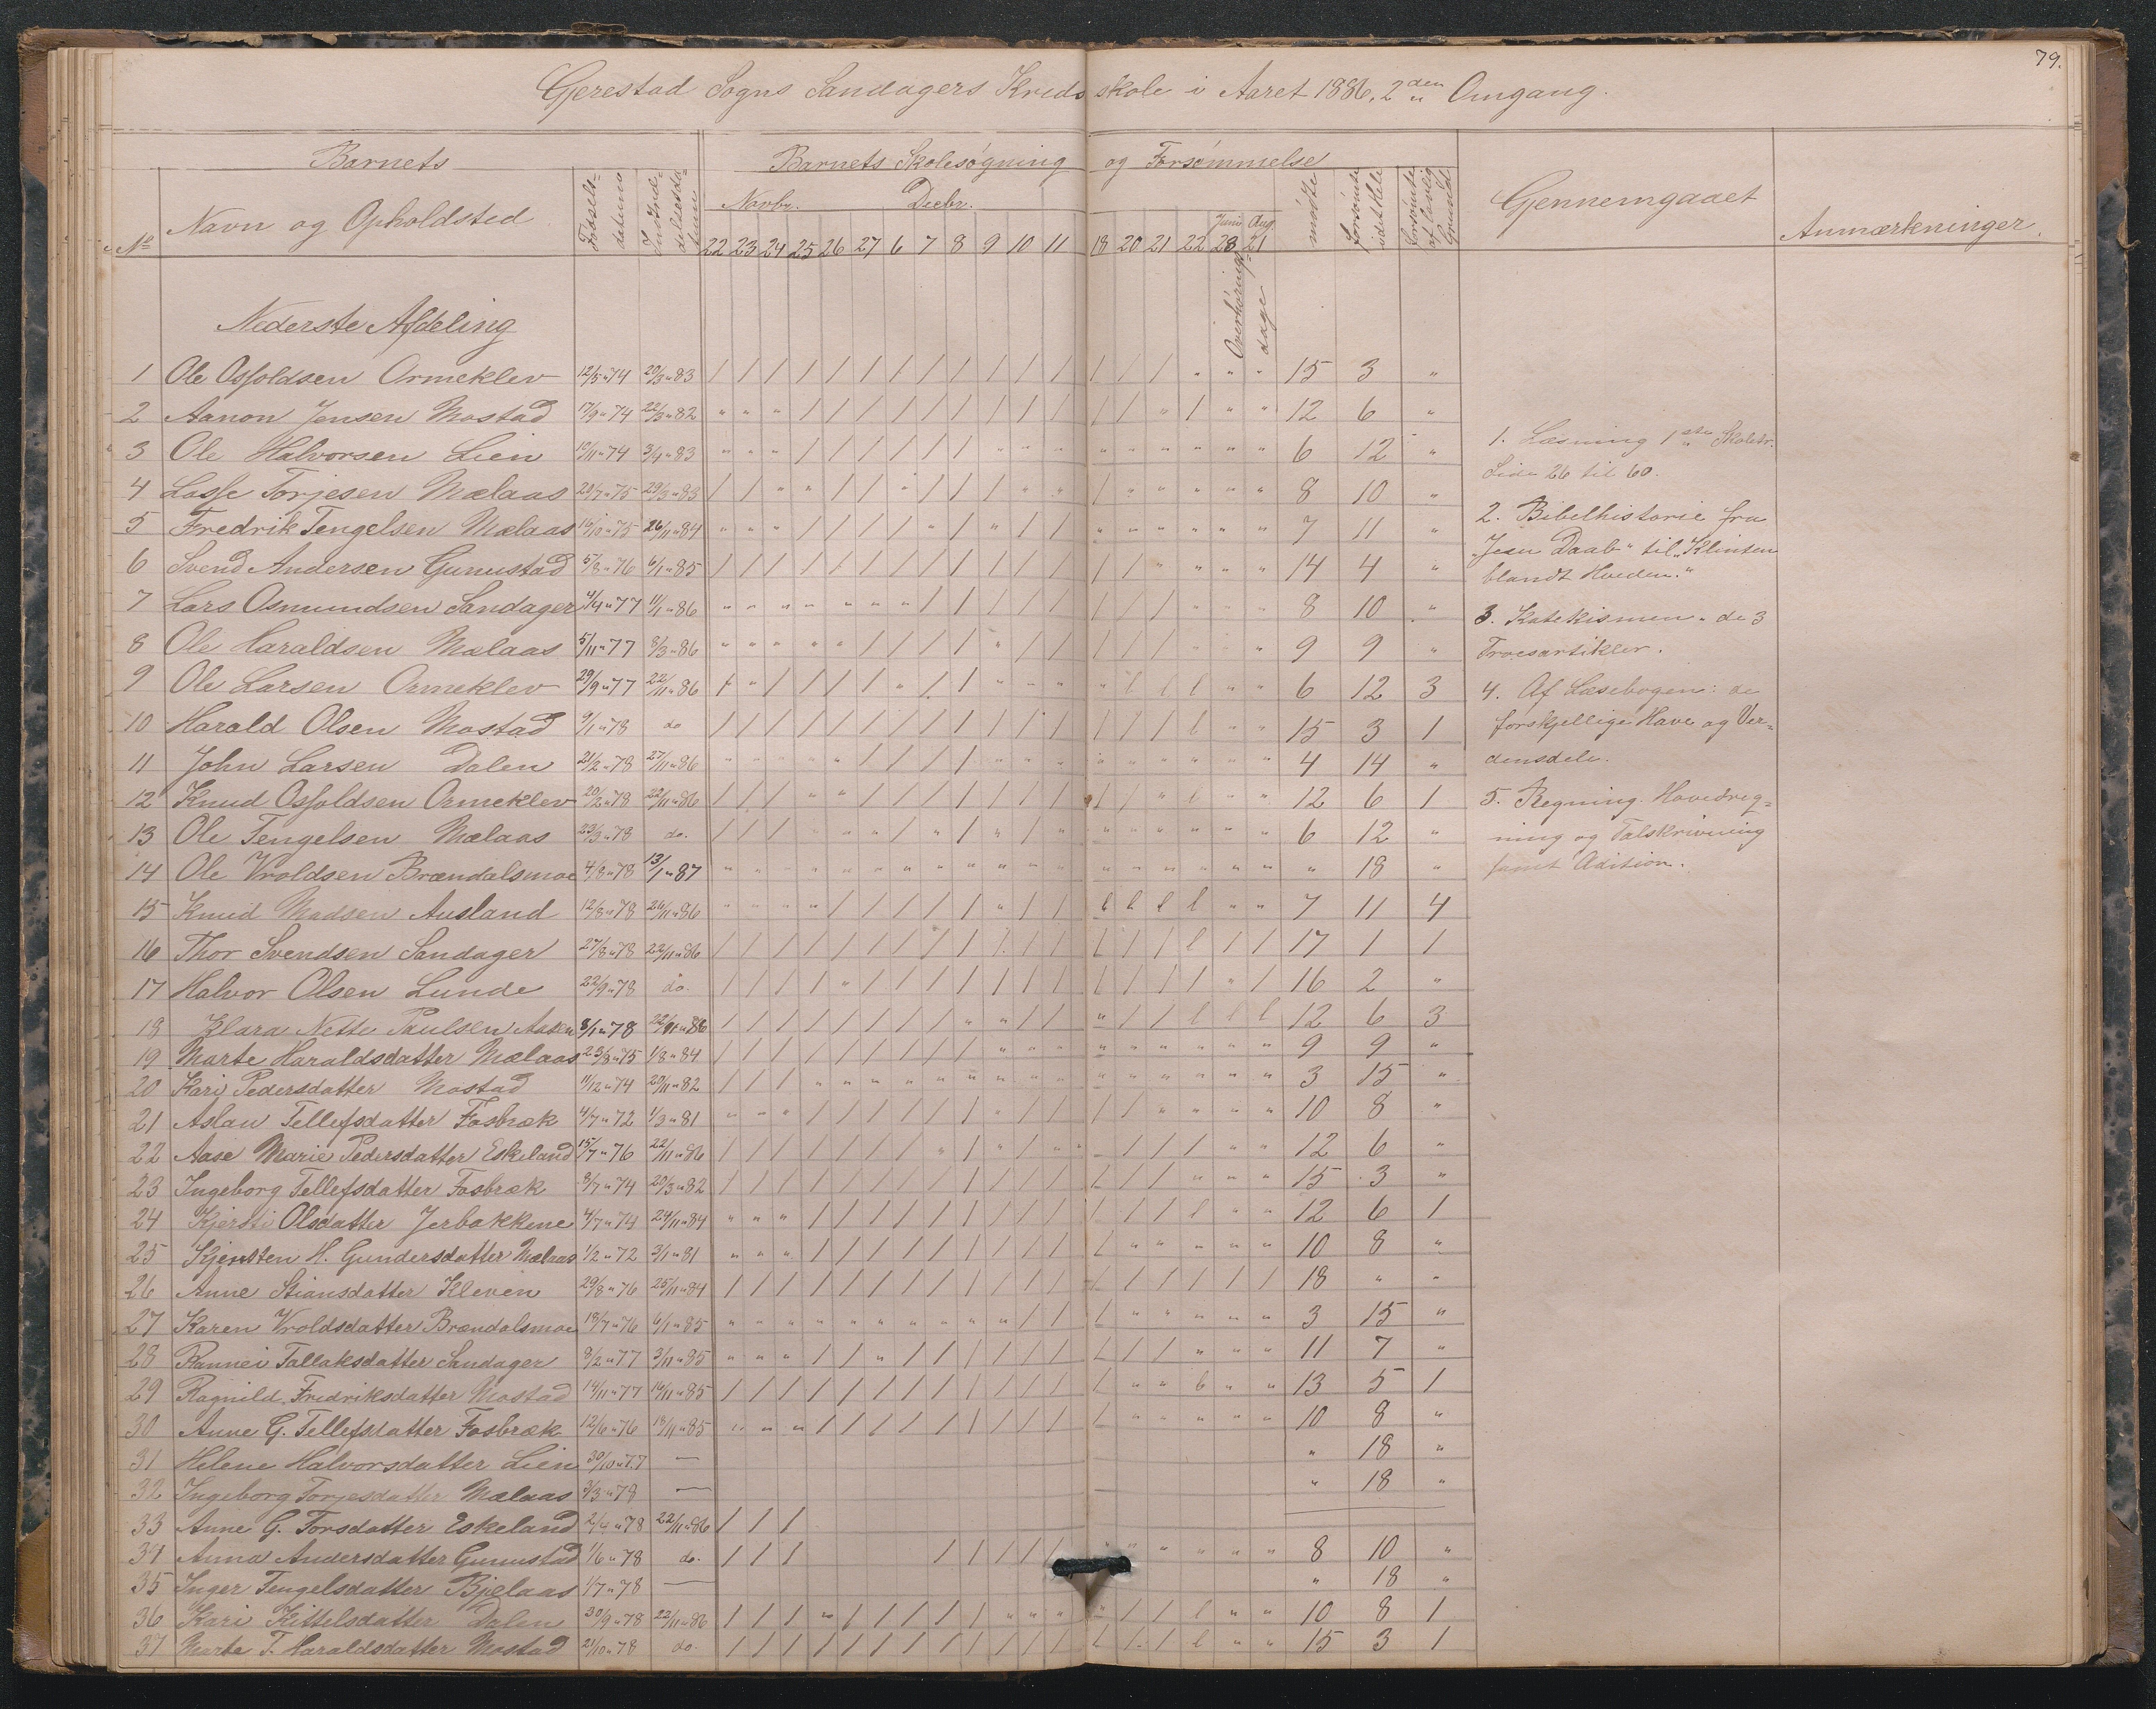 79.
Gjerestad Sogns Sandagers Kredsskole i Aaret 1886, 2den Omgang.
Barnets Barnets Skolesøgning og Forsømmelse
No Navn og Opholdsted Fødsels-datum Indtrædelsesdatum Novbr. Decbr. Juni Aug. mødte forsømte idet Hele forsømte af lovlig Grund Gjennemgaaet Anmærkninger.
22 23 24 25 26 27 6 7 8 9 10 11 18 20 21 22 28 21
Overhørings-dage
Nederste Afdeling
1 Ole Osfoldsen Ormeklev 12/5 " 74 20/3 " 83 / / / / / / / / / / / / / / / " " " 15 3 "
2 Aanon Jensen Mostad 17/9 " 74 22/3 " 82 " " " / / / / / / / / / / / " / " " 12 6 "
3 Ole Halvorsen Lien 10/11 " 74 3/4 " 83 " " " / / / / / / " " " " " " " " " 6 12 "
4 Losse Torjesen Mælaas 28/7 " 75 29/3 " 83 / / " " / / " / / / " " / " " " " " 8 10 "
5 Fredrik Tengelsen Mælaas 16/10 " 75 26/11 " 84 " " " / / / / " / " / / " " " " " " 7 11 "
6 Svend Andersen Gunnustad 5/8 " 76 6/1 " 85 / / / / / / / / / / / / / / " " " " 14 4 "
7 Lars Osmundsen Sandager 4/4 " 77 11/1 " 86 " " " " " " " / / / / / / / / " " " 8 10 "
8 Ole Haraldsen Mælaas 5/11 " 77 8/3 " 86 " " " " " / / / / " / / / / / " " " 9 9 "
9 Ole Larsen Ormeklev 29/9 " 77 22/11 " 86 / " / / / / " / / " " " " l l l " " 6 12 3
10 Harald Olsen Mostad 9/1 " 78 do / / / / / / / / / / / / / / / l " " 15 3 1
11 John Larsen Dalen 21/2 " 78 27/11 " 86 " " " " " / / / / " " " " " " " " " 4 14 "
12 Knud Osfoldsen Ormeklev 20/2 " 78 22/11 " 86 / / / " " / / / / / / / / / " l " " 12 6 1
13 Ole Tengelsen Mælaas 23/3 " 78 do. / / / " " " / " / " / " " " " " " " 6 12 "
14 Ole Vroldsen Brændalsmoe 4/8 " 78 13/1 " 87 " " " " " " " " " " " " " " " " " " " 18 "
15 Knud Madsen Ausland 12/8 " 78 26/11 " 86 " " " " / / / / / " / / l l l l " " 7 11 4
16 Thor Svendsen Sandager 27/8 " 78 22/11 " 86 / / / / / / / / / / / / / / / l / / 17 1 1
17 Halvor Olsen Lunde 22/9 " 78 do. / / / / " / / / / / / / / / / / " / 16 2 "
18 Klara Nette Paulsen Aasen 8/1 " 78 22/11 " 86 / / / / / / / / " " / / " / / l l l 12 6 3
19 Marte Haraldsdatter Mælaas 23/8 " 75 1/8 " 84 / / / / / / / / / " " " " " " " " " 9 9 "
20 Kari Pedersdatter Mostad 11/12 " 74 29/11 " 82 / / / " " " " " " " " " " " " " " " 3 15 "
21 Aslau Tellefsdatter Fosbræk 4/7 " 72 1/3 " 81 " " " / / / / / / " / / / / " " " " 10 8 "
22 Aase Marie Pedersdatter Eskeland 15/7 " 76 22/11 " 86 / / / / / / / " / " / " " / / / " " 12 6 "
23 Ingeborg Tellefsdatter Fosbræk 8/7 " 74 20/3 " 82 / / / / / / / / / / / / / / / " " " 15 3 "
24 Kjersti Olsdatter Jerbakkene 4/7 " 74 24/11 " 84 " " " / / / / / / / / / / / / l " " 12 6 1
25 Kjersten H. Gundersdatter Mælaas 1/2 " 72 3/1 " 81 " " " / / / / / / / / / / " " " " " 10 8 "
26 Anne Stiansdatter Kleven 29/8 " 76 25/11 " 84 / / / / / / / / / / / / / / / / / / 18 " "
27 Karen Vroldsdatter Brændalsmoe 18/7 " 76 6/1 " 85 " " " " " " " " " " / / / " " " " " 3 15 "
28 Rannei Tallaksdatter Sandager 8/2 " 77 3/11 " 85 " " " / / " / / / / / / / / / " " " 11 7 "
29 Ragnild Fredriksdatter Mostad 14/11 " 77 16/11 " 85 / / / / / / / / / / / / / " " l " " 13 5 1
30 Anne G. Tellefsdatter Fosbræk 12/6 " 76 18/11 " 85 " " " / / / / / / / / / / " " " " " 10 8 "
31 Helene Halvorsdatter Lien 30/10 " 77 — " 18 "
32 Ingeborg Torjesdatter Mælaas 3/3 " 78 — " 18 "
33 Anne G. Torsdatter Eskeland 2/4 " 78 22/11 " 86 / / /
34 Anna Andersdatter Gunnustad 1/6 " 78 do. / / / / / / / / " " " " " " 8 10 "
35 Inger Tengelsdatter Bjelaas 1/7 " 78 — " 18 "
36 Kari Kittelsdatter Dalen 30/9 " 78 22/11 " 86 / / / " / / / / / " " " " / / l " " 10 8 1
37 Marte T. Haraldsdatter Mostad 21/10 " 78 do. / / / / / / / / / / / / / / / l " " 15 3 1
1. Læsning 1ste Skoletr.
Side 26 til 60.
2. Bibelhistorie fra
"Jesu Daab" til "Klinten
blandt Hveden."
3. Katekismen " de 3
Troesartikler.
4. Af Læsebogen: de
forskjellige Have og Ver-
densdele.
5. Regning. Hovedreg-
ning og Talskrivning
samt Adition.